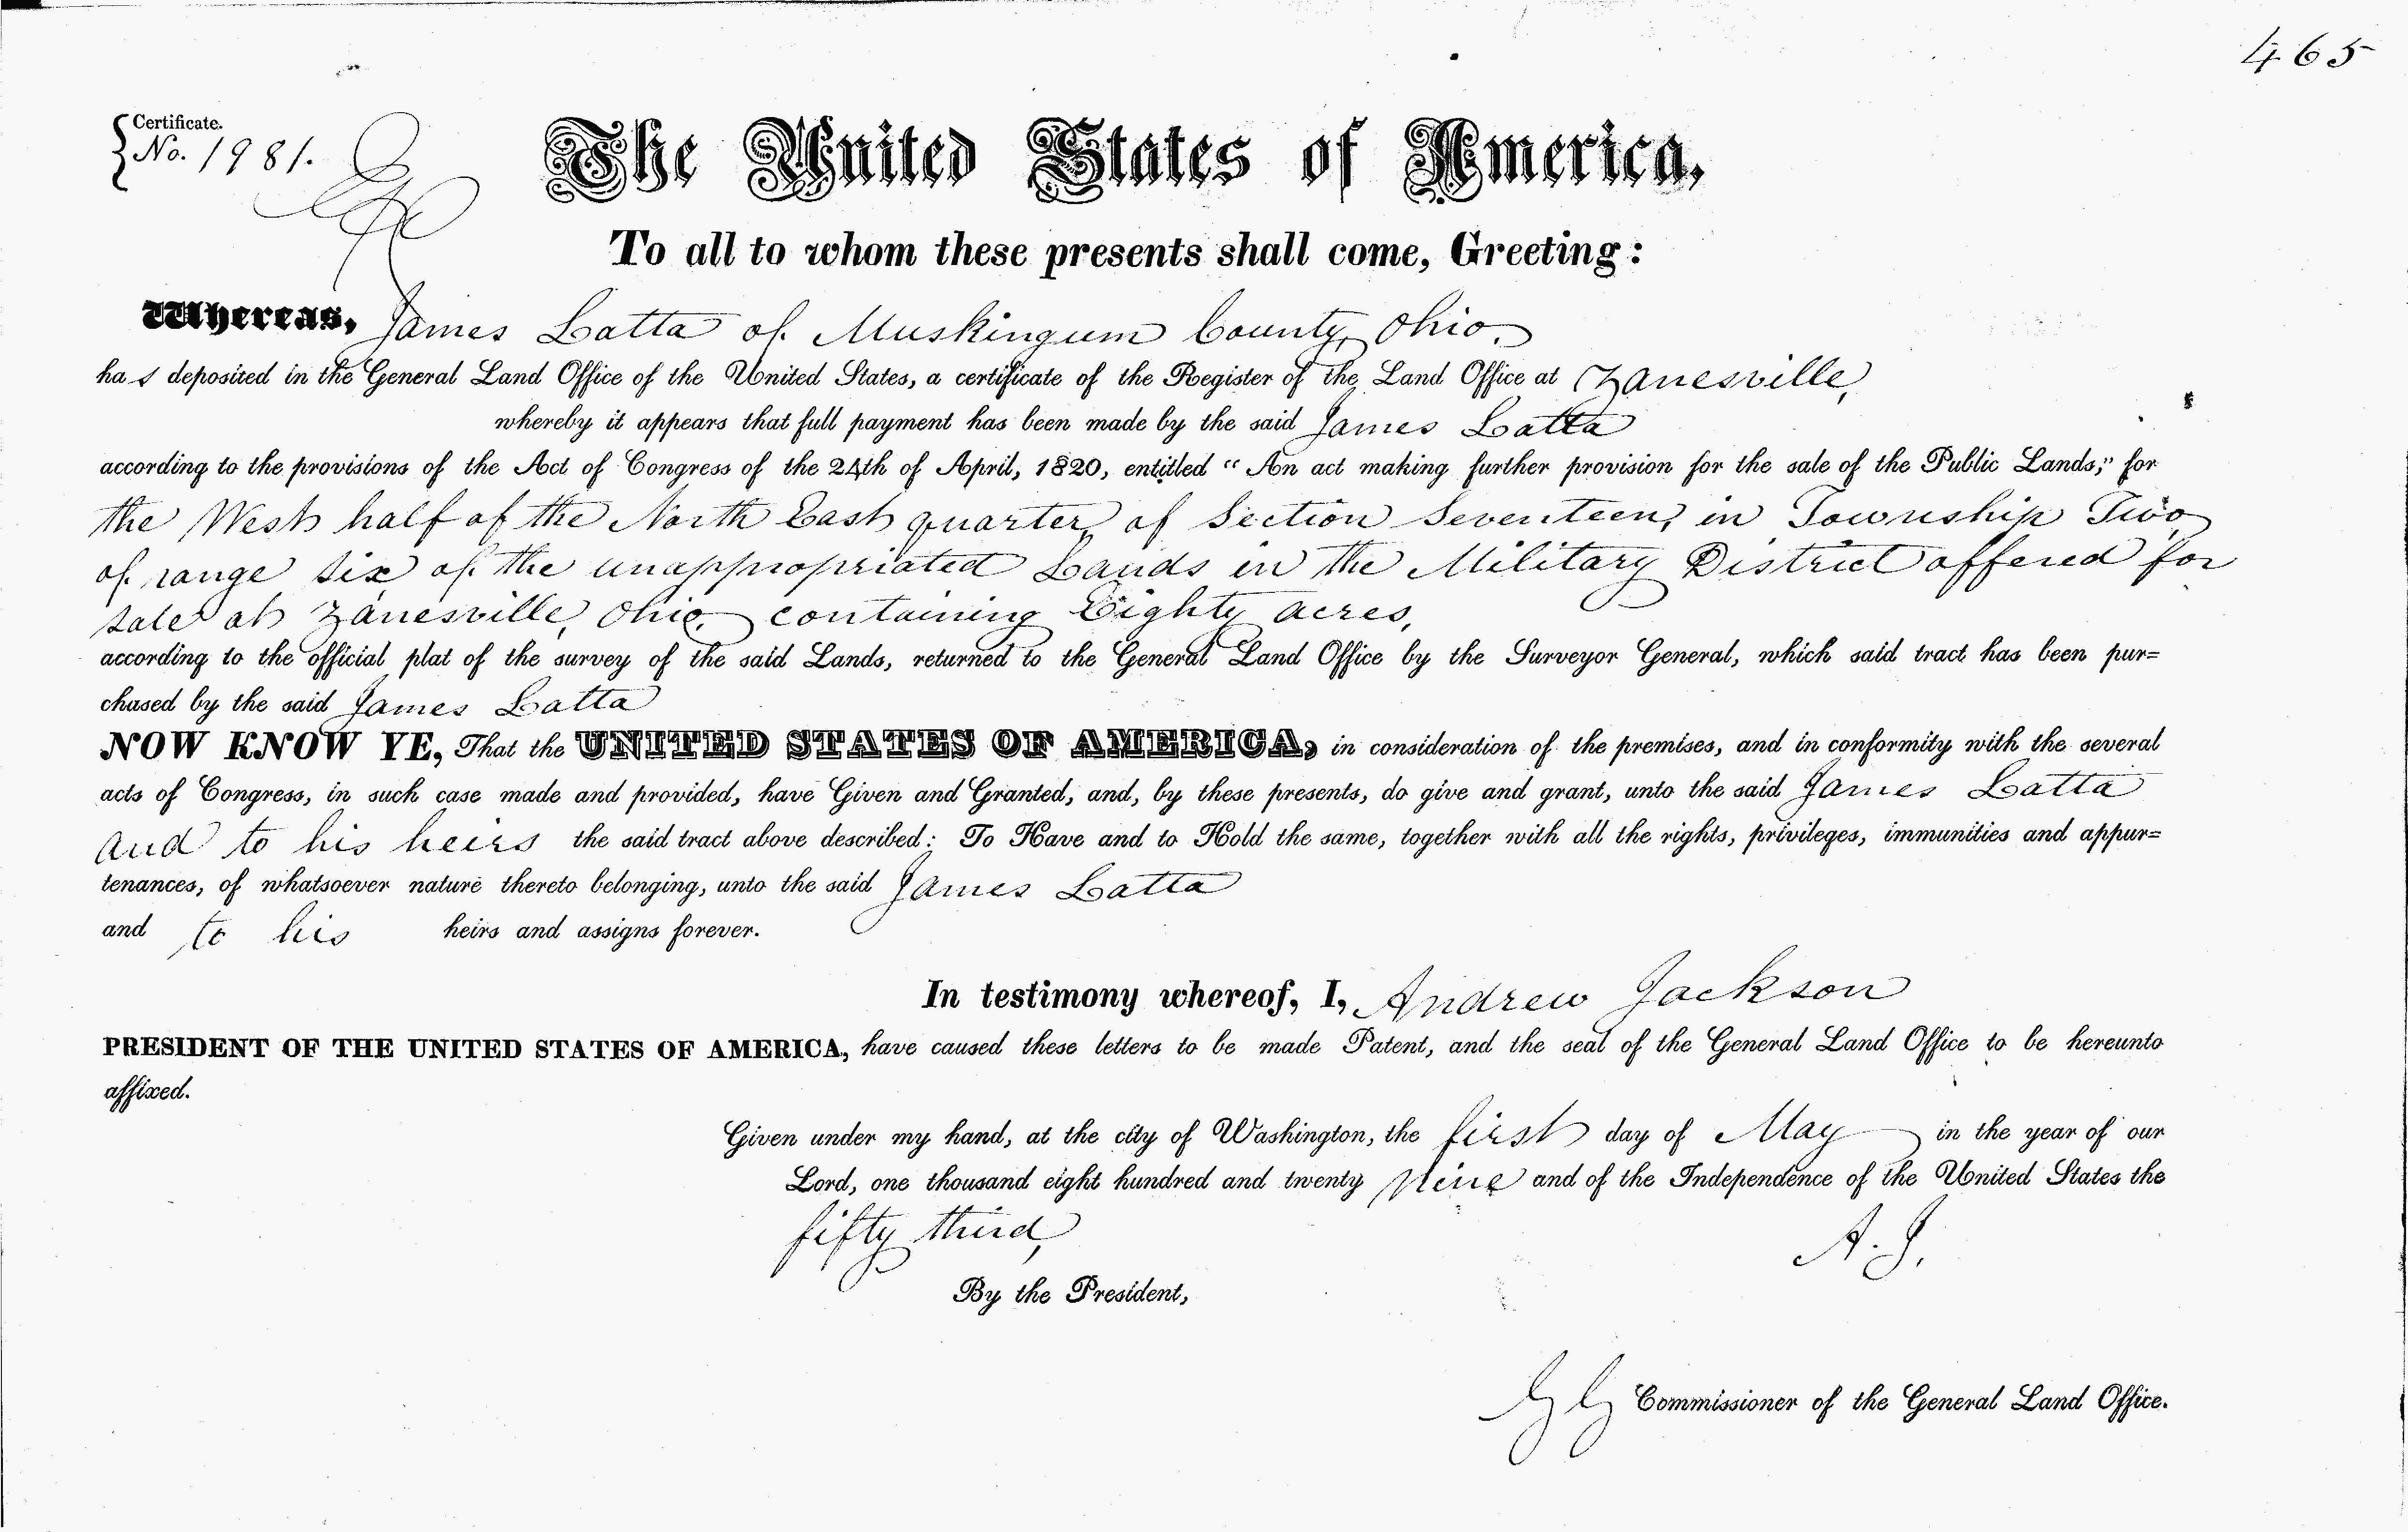 465
Certificate.
No. 1981.
The United States of America,
To all to whom these presents shall come, Greeting:
Whereas, James Latta of Muskingum County, Ohio.
has deposited in the General Land Office of the United States, a certificate of the Register of the Land Office at Zanesville,
whereby it appears that full payment has been made by the said James Latta
according to the provisions of the Act of Congress of the 24th of April, 1820, entitled "An act making further provision for the sale of the Public Lands;" for
the West half of the North East quarter, of Section Seventeen, in Township Two,
of range six of the unappropriated Lands in the Military District offered for
sale at Zanesville, Ohio, containing Eighty acres,
according to the official plat of the survey of the said Lands, returned to the General Land Office by the Surveyor General, which said tract has been pur=
chased by the said James Latta
NOW KNOW YE, That the UNITED STATES OF AMERICA, in consideration of the premises, and in conformity with the several
acts of Congress, in such case made and provided, have Given and Granted, and, by these presents, do give and grant, unto the said James Latta
and to his heirs the said tract above described: To Have and to Hold the same, together with all the rights, privileges, immunities and appur=
tenances, of whatsoever nature thereto belonging, unto the said James Latta
and to his heirs and assigns forever.
In testimony whereof, I, Andrew Jackson
PRESIDENT OF THE UNITED STATES OF AMERICA, have caused these letters to be made Patent, and the seal of the General Land Office to be hereunto
affixed.
Given under my hand, at the city of Washington, the first day of May in the year of our
Lord, one thousand eight hundred and twenty Nine and of the Independence of the United States the
fifty third,
A. J.
By the President,
Commissioner of the General Land Office.